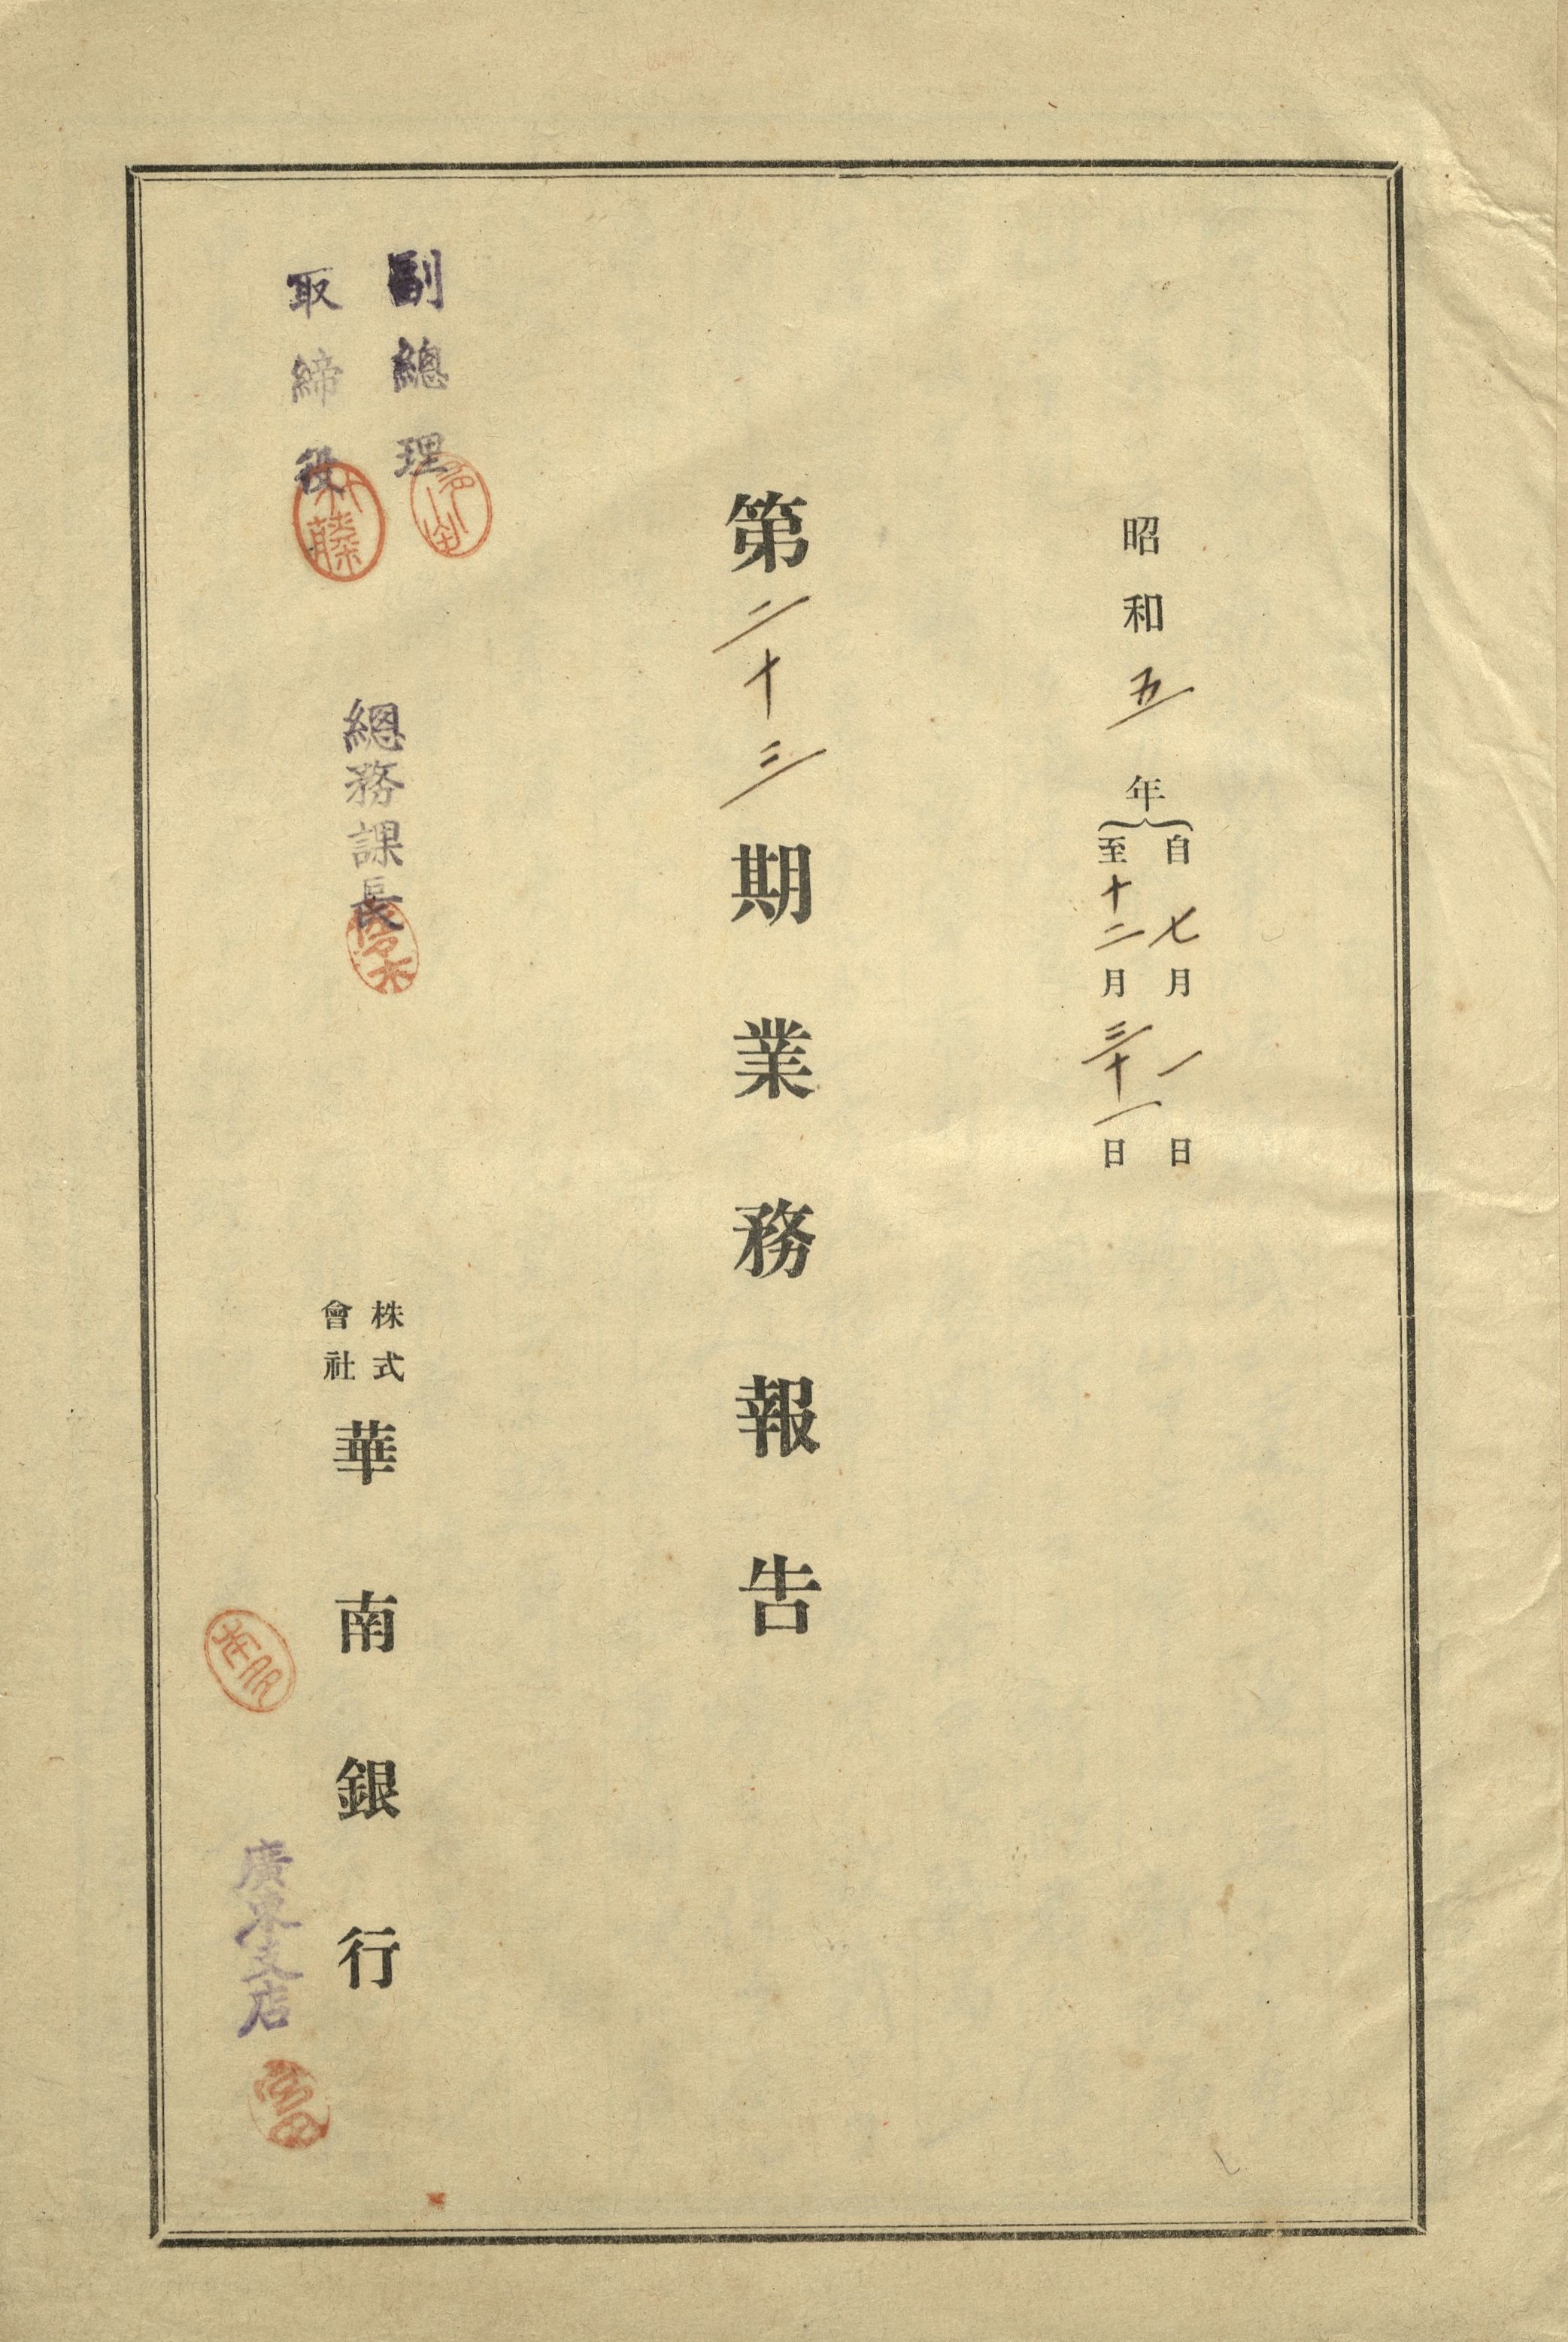 昭和五年
自七月一日
至十二月三十一日
第二十三期業務報告
副總理
取締役
總務課長
株式
會社
華南銀行
廣東支店